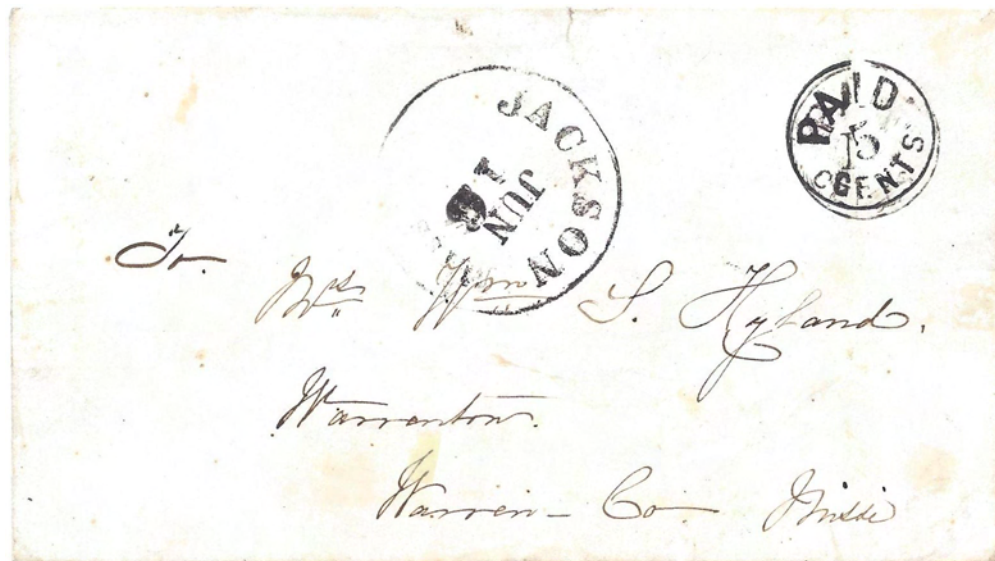 JACKSON
JUN
1
PAID
5
CENTS
To.
Mrs. Wm S. Hyland.
Warrenton.
Warren - Co Missi